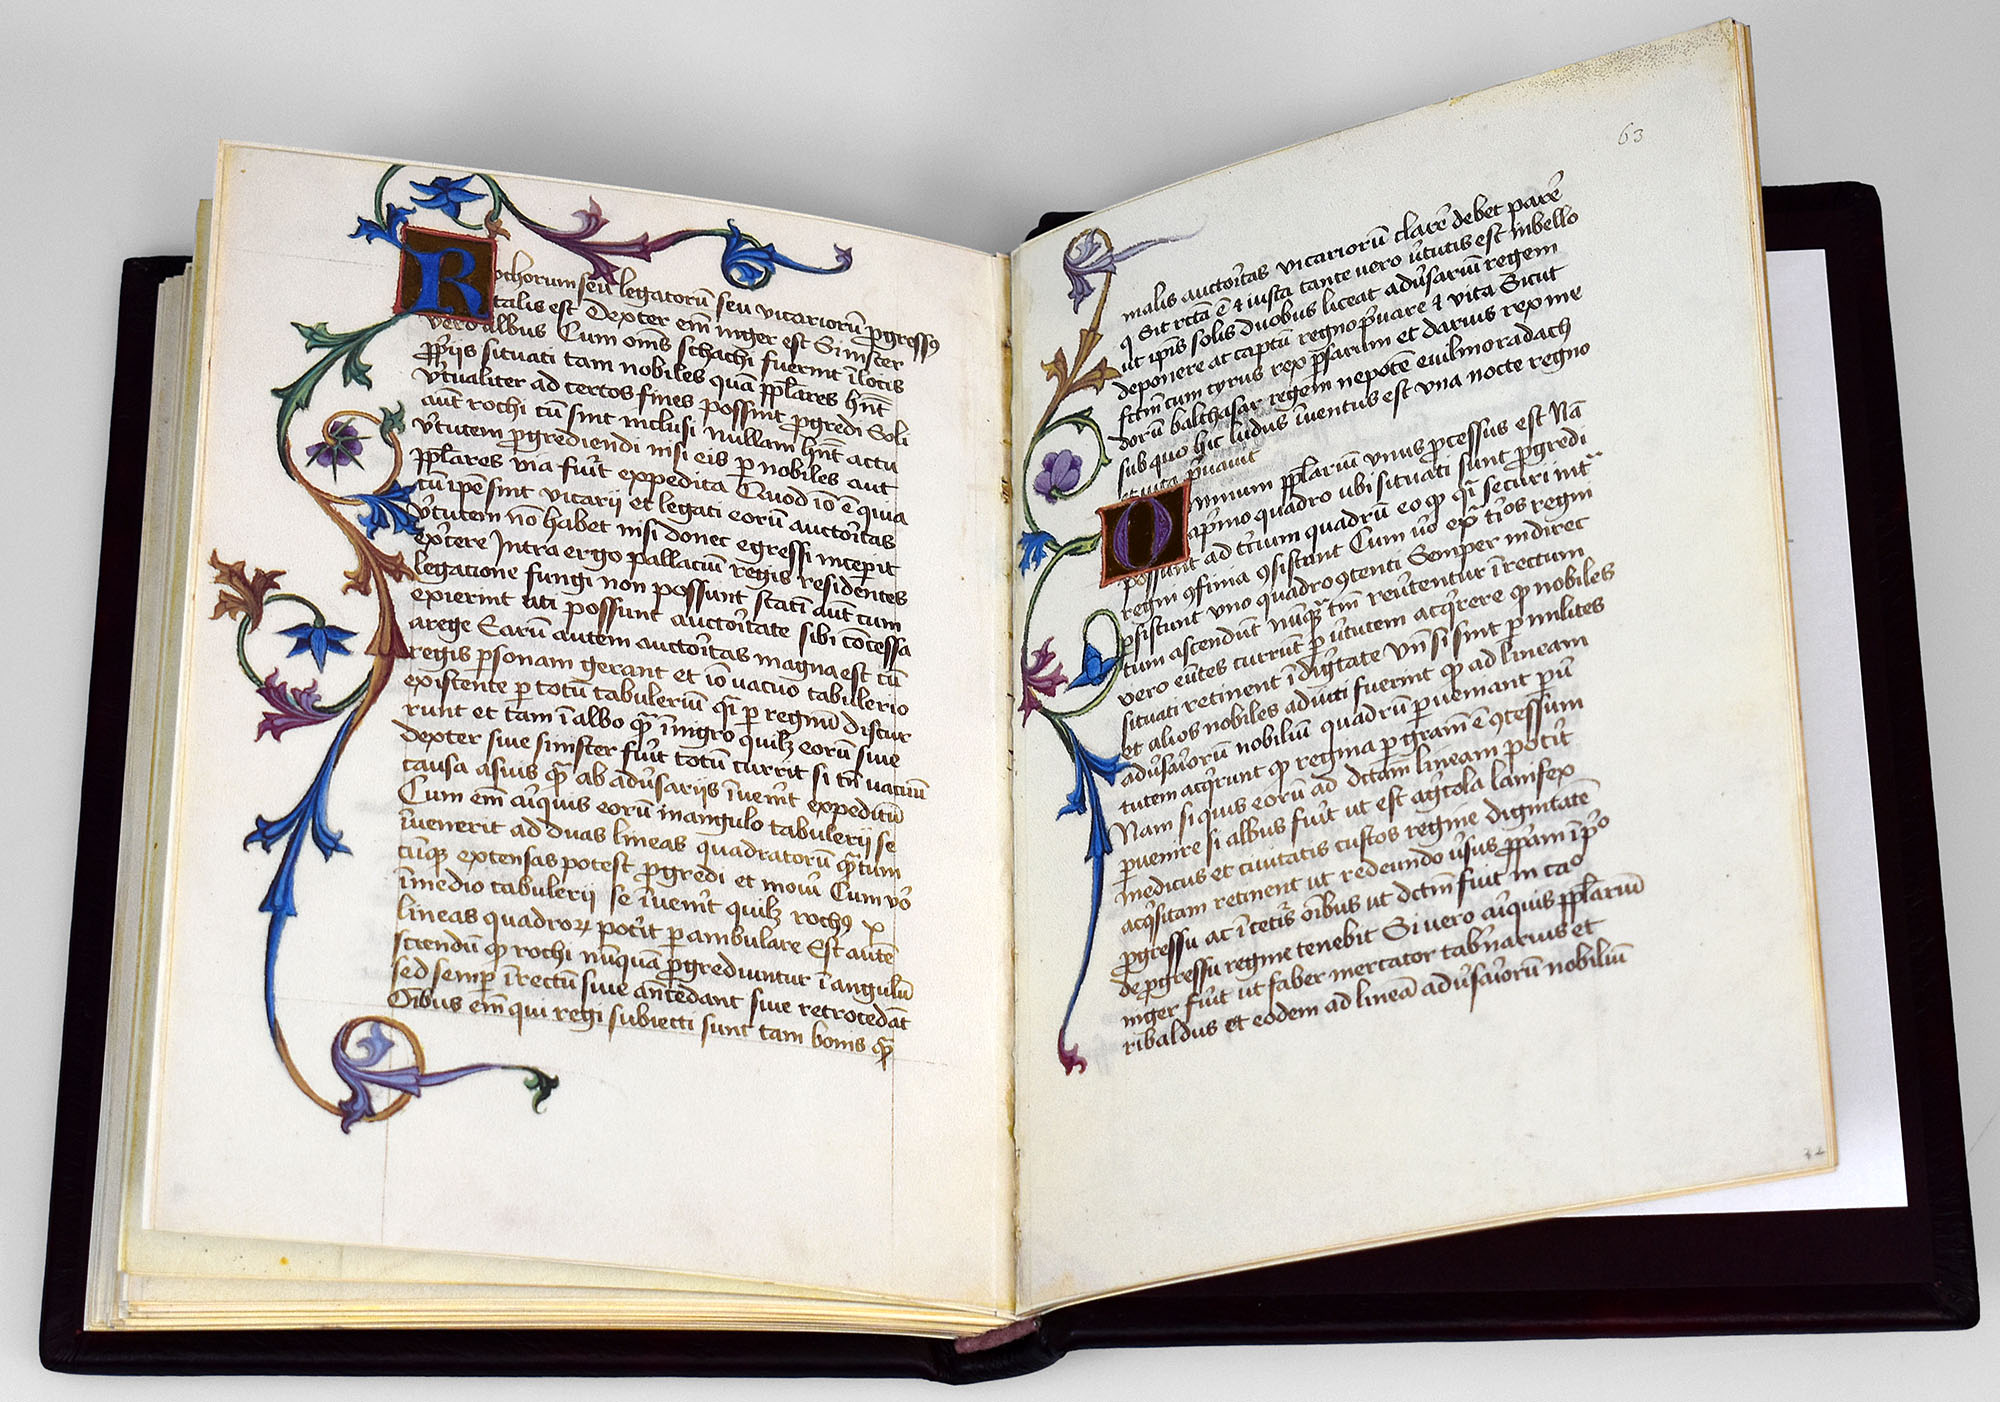 Rochorum seu legatorū seu vicariorū ꝑgressꝰ
talis est Dexter em̄ niger est Sinister
vero albus Cum om̄s schachi fuerint ī locis
ꝓprijs situati tam nobiles quā pp̄lares hn̄t
v̓tualiter ad certos fines possint ꝓgredi Soli
aut̄ rochi cū sint inclusi nullam hn̄t actu
v̓tutem ꝓgrediendi nisi eis ꝑ nobiles aut
pp̄lares via fu̓it expedita Quod iō ē quia
cū ipē sint vicarii et legati eorū auctoītas
v̓tutem nō habet nisi donec egressi inceꝑit
ex̓cere Intra ergo pallaciū regis residentes
legacione fungi non possunt statī aut cum
exierint uti possunt auctoītate sibi cōcessa
a rege Earū autem auctoītas magna est cū
regis ꝑsonam gerant et iō vacuo tabulerio
existente ꝑ totū tabuleriū qi̓ ꝑ regnū discur
runt et tam ī albo qm̄ ī nigro quilꝫ eorū siue
dexter siue sinister fu̓it totū currit si tn̄ vacuū
causa a suis qm̄ ab adu̓sarijs īuen̓it expeditū
Cum em̄ aīquis eorū in angulo tabulerij se
īuenerit ad duas lineas quadratorū qn̄tum
cūqꝫ extensas potest ꝓgredi et mou̓i Cum v̓o
ī medio tabulerij se īuen̓it quilꝫ rochꝰ x
lineas quadroꝝ pot̓it ꝑambulare Est autē
sciendū qꝫ rochi nūquā ꝓgrediuntur ī angulū
sed semꝑ ī rectū siue an̄cedant siue retrocedāt
Oībus em̄ qui regi subiecti sunt tam bonis qm̄
63
malis auctoītas vicariorū clarē debet parē
q̓ sit rc̄ta ē ⁊ iusta tante vero v̓tutis est in bello
ut ip̄is solis duobus liceat adu̓sariū regem
deponere at captū regno p̓uare ⁊ vita Sicut
fc̄m cum cyrus rex ꝑsarum et darius rex me
dorū balthasar regem nepotē euilmoradach
sub quo hic ludus īuentus est vna nocte regno
et vita p̓uauit
Omnium pp̄larium vnus ꝓcessus est Nā
a p̓mo quadro ubi situati sunt ꝓgredi
possunt ad tr̓ium quadrū eo qꝫ qi̓ securi int̓
regni ꝯfinia ꝯsistunt Cum v̓o ex̓ t̓ios regni
ꝑsistunt uno quadro ꝯtenti Semper in direc
tum ascendūt nūqm̄ tn̄ reu̓tentur ī rectum
vero eūtes currūt ꝑ v̓tutem acq̓rere qꝫ nobiles
situati retinent ī dig̓tate Vn̄ si sint ꝑ milites
et alios nobiles adiuti fuerint qꝫ ad lineam
adu̓sariorū nobiliū quadrū ꝑueniant ꝑ v̓
tutem acq̓runt qꝫ regina ꝑ gram̄ ē ꝯcessum
Nam si quis eorū ad dc̄tam lineam pot̓it
ꝑuenire si albus fu̓it ut est ag̓cola lanifex
medicus et ciuitatis custos regine dignitatē
acq̓sitam retinent ut redeundo u̓sus ꝓp̄am īp̓o
ꝓgressu ac ī cet̓is oībus ut dc̄m fuit in ca̓o
de ꝓgressu regine tenebit Si vero aīquis pp̄lariū
niger fu̓it ut faber mercator tab̓narius et
ribaldus et eodem ad lineā adu̓sariorū nobiliū
32